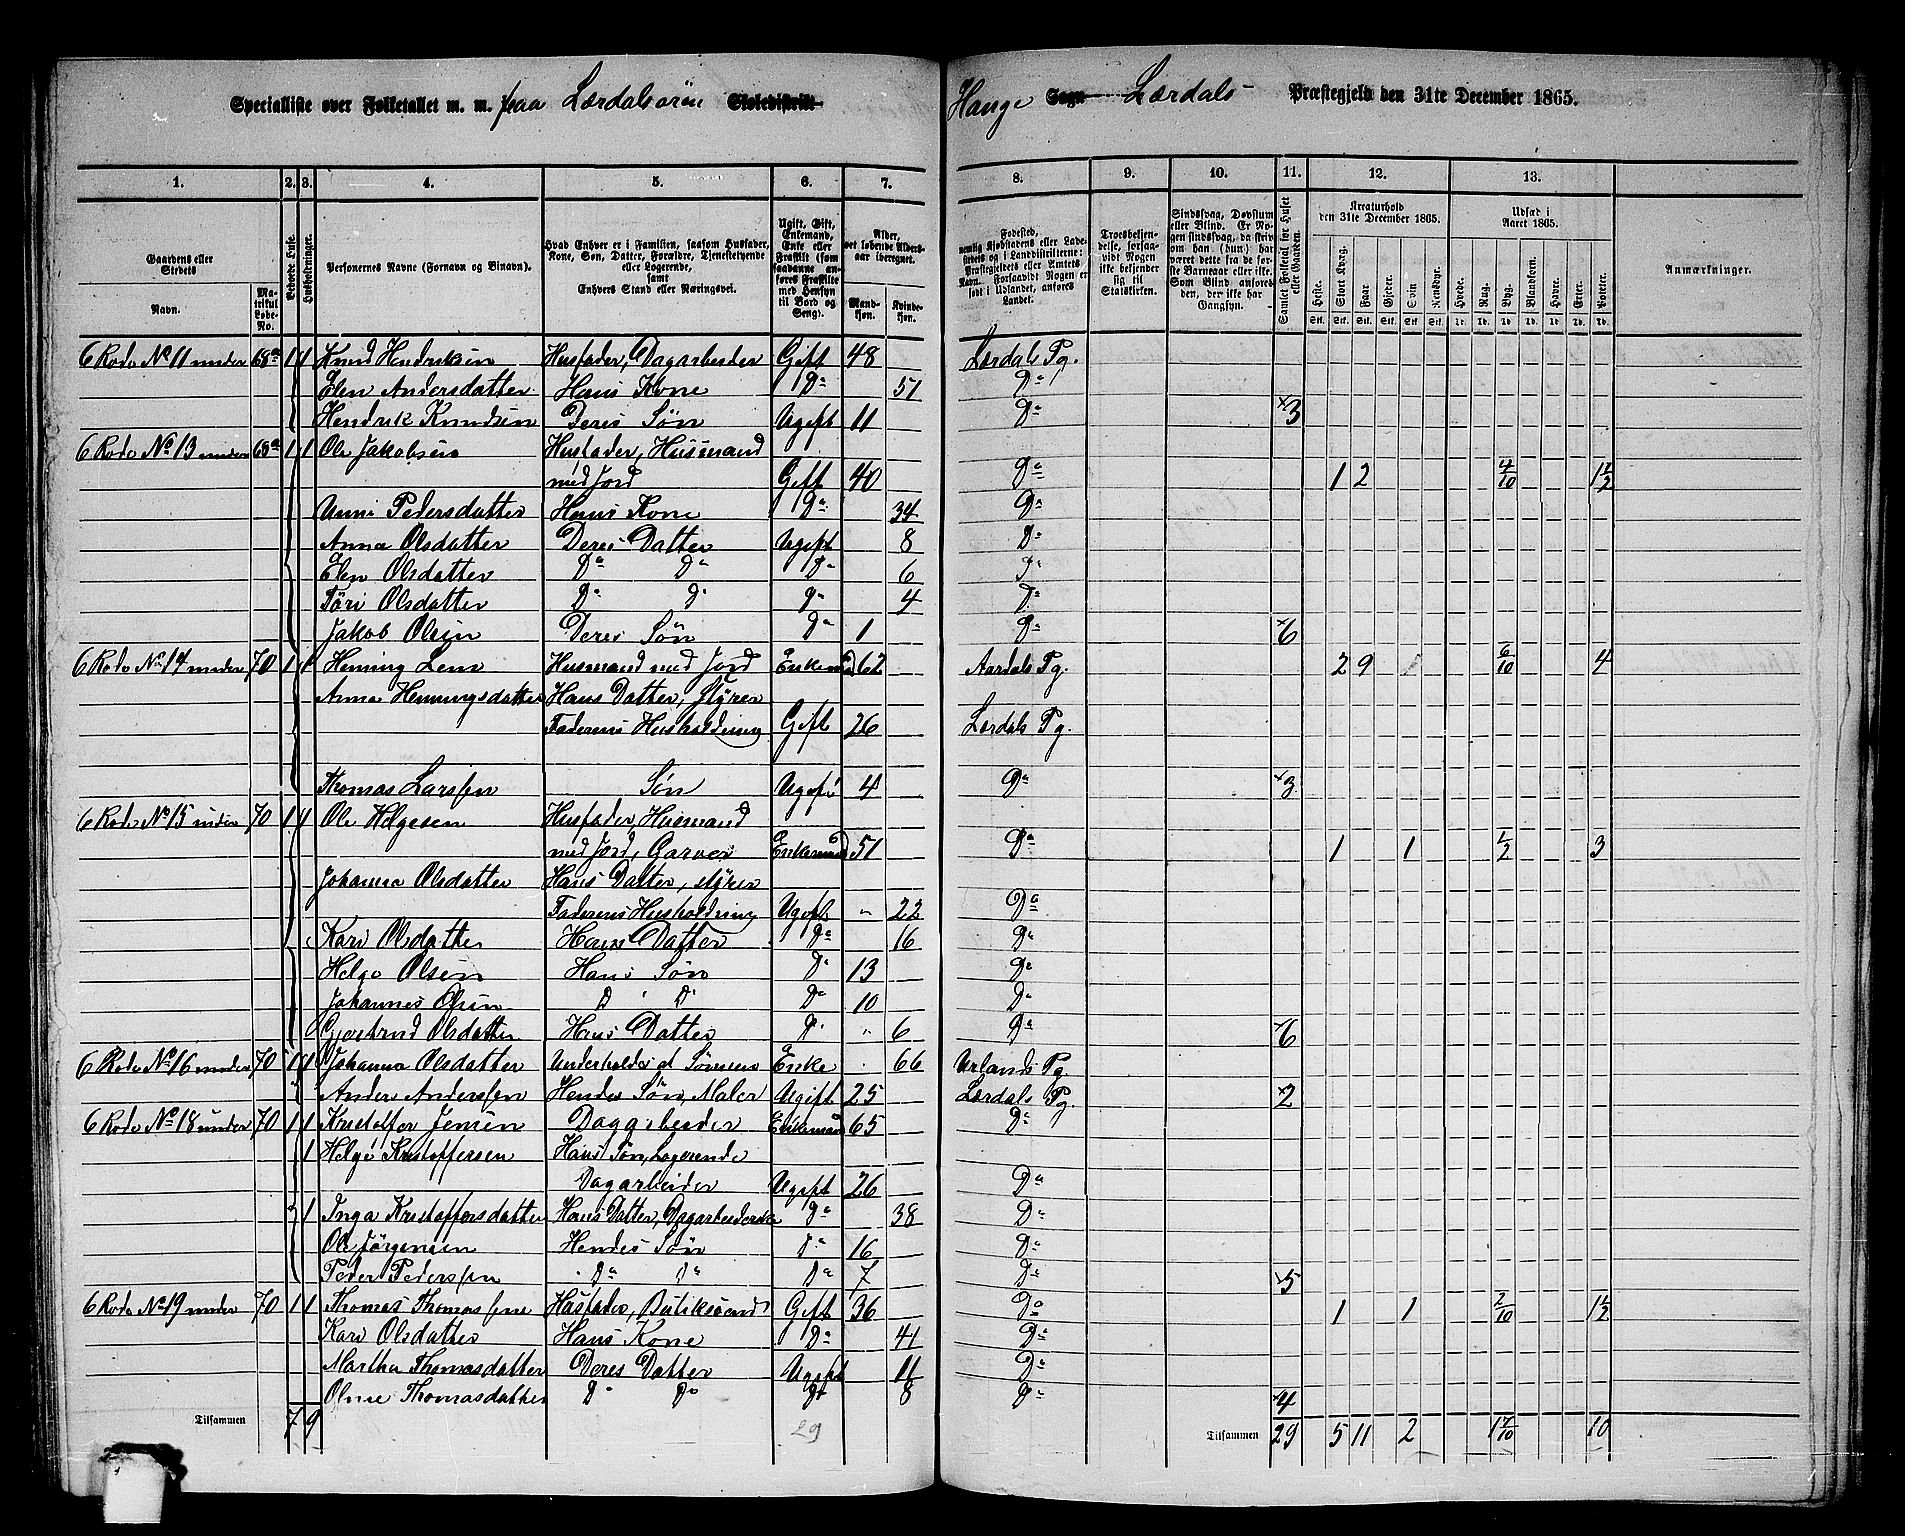 Specialliste over Folketallet m. m. paa Lærdalsøren Skoledistrikt
Hauge Sogn Lærdals Præstegjeld den 31te December 1865.
1. 2. 3. 4. 5. 6. 7. 8. 9. 10. 11. 12. 13.
Gaardens eller Stedets
Navn.
Matrikul Løbe-No.
Beboede Huse.
Husholdninger.
Personernes Navne (Fornavn og Binavn).
Hvad Enhver er i Familien, saasom Husfader, Kone, Søn, Datter, Forældre, Tjenestetyende eller Logerende, samt Enhvers Stand eller Næringsvei.
Ugift, Gift, Enkemand, Enke eller Fraskilt (som saadanne anføres Fraskilte med Hensyn til Bord og Seng).
Alder, det løbende Alders-aar iberegnet.
Mandkjøn. Kvindekjøn.
Fødested, nemlig Kjøbstadens eller Ladestedets eller i Landdistrikterne: Præstegjeldets eller Amtets Navn. Forsaavidt Nogen er født i Udlandet, anføres Landet.
Troesbekjendelse, forsaavidt Nogen ikke bekjender sig til Statskirken.
Sindssvag, Døvstum eller Blind. Er Nogen sindssvag, da skriv om han (hun) har været dette fra de første Barneaar eller ikke. Som Blind anføres den, der ikke har Gangsyn.
Samlet Folketal for Huset eller Gaarden.
Kreaturhold den 31te December 1865.
Heste. Stort Kvæg. Faar. Gjeder. Svin. Rensdyr.
Udsæd i Aaret 1865.
Hvede. Rug. Byg. Blandkorn. Havre. Erter. Poteter.
Anmærkninger.
6 Rode No 11 under 68a 1 1 Knud Hendriksen Husfader, Dagarbeider Gift 48 Lærdals Pg.
Elen Andersdatter Hans Kone Do 51 Do
Hendrik Knudsen Deres Søn Ugift 11 Do 3
6 Rode No 13 under 68a 1 1 Ole Jakobsen Husfader, Husmand
med Jord Gift 40 Do 1 2 4/10 1 1/2
Unni Pedersdatter Hans Kone Do 34 Do
Anna Olsdatter Deres Datter Ugift 8 Do
Elen Olsdatter Do Do Do 6 Do
Töri Olsdatter Do Do Do 4 Do
Jakob Olsen Deres Søn Do 1 Do 6
6 Rode No 14 under 70 1 1 Heming Lem Husmand med Jord Enkemand 62 Aardals Pg. 2 9 1 6/10 4
Anna Hemingsdatter Hans Datter, styrer
Faderens Husholdning Gift 26 Lærdals Pg.
Thomas Larssen Søn Ugift 4 Do 3
6 Rode No 15 under 70 1 1 Ole Helgesen Husfader, Husmand
med Jord, Garver Enkemand 51 Do 1 1 1/2 3
Johanna Olsdatter Hans Datter, styrer
Faderens Husholdning Ugift " 22 Do
Kari Olsdatter Hans Datter Do 16 Do
Helge Olsen Hans Søn Do 13 Do
Johannes Olsen D D Do 10 Do
Gjertrud Olsdatter Hans Datter Do " 6 Do 6
6 Rode No 16 under 70 1 1 Johanna Olsdatter Underholdes af Sønnen Enke 66 Urlands Pg.
Anders Anderssen Hendes Søn, Maler Ugift 25 Lærdals Pg. 2
6 Rode No 18 under 70 1 1 Kristoffer Jensen Dagarbeider Enkemand 65 Do
1 Helge Kristoffersen Hans Søn, Logerende
Dagarbeider Ugift 26 Do
1 Inga Kristoffersdatter Hans Datter, Dagarbeiderske Do 38 Do
Ole Jørgensen Hendes Søn Do 16 Do
Peder Pederssen Do Do Do 7 Do 5
6 Rode No 19 under 70 1 1 Thomas Thomassen Husfader, Gift 36 Do 1 1 2/10 1 1/2
Kari Olsdatter Hans Kone Do 41 Do
Martha Thomasdatter Deres Datter Ugift 11 Do
Oline Thomasdatter Do Do Do 8 Do 4
Tilsammen 7 9 29 Tilsammen 29 5 11 2 1 7/10 10